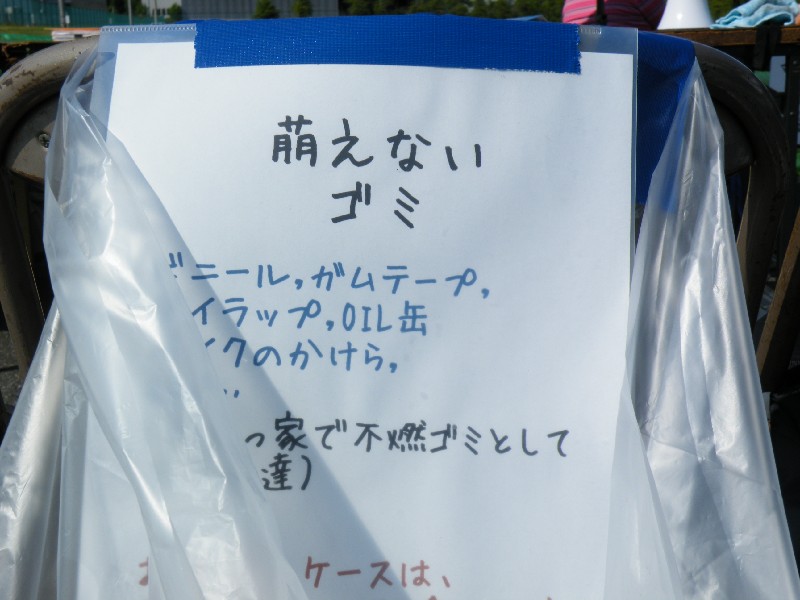 萌えない
ゴミ
ビニール,ガムテープ,
イラップ,OIL缶
イクのかけら,
っ家で不燃ゴミとして
達)
ケースは、